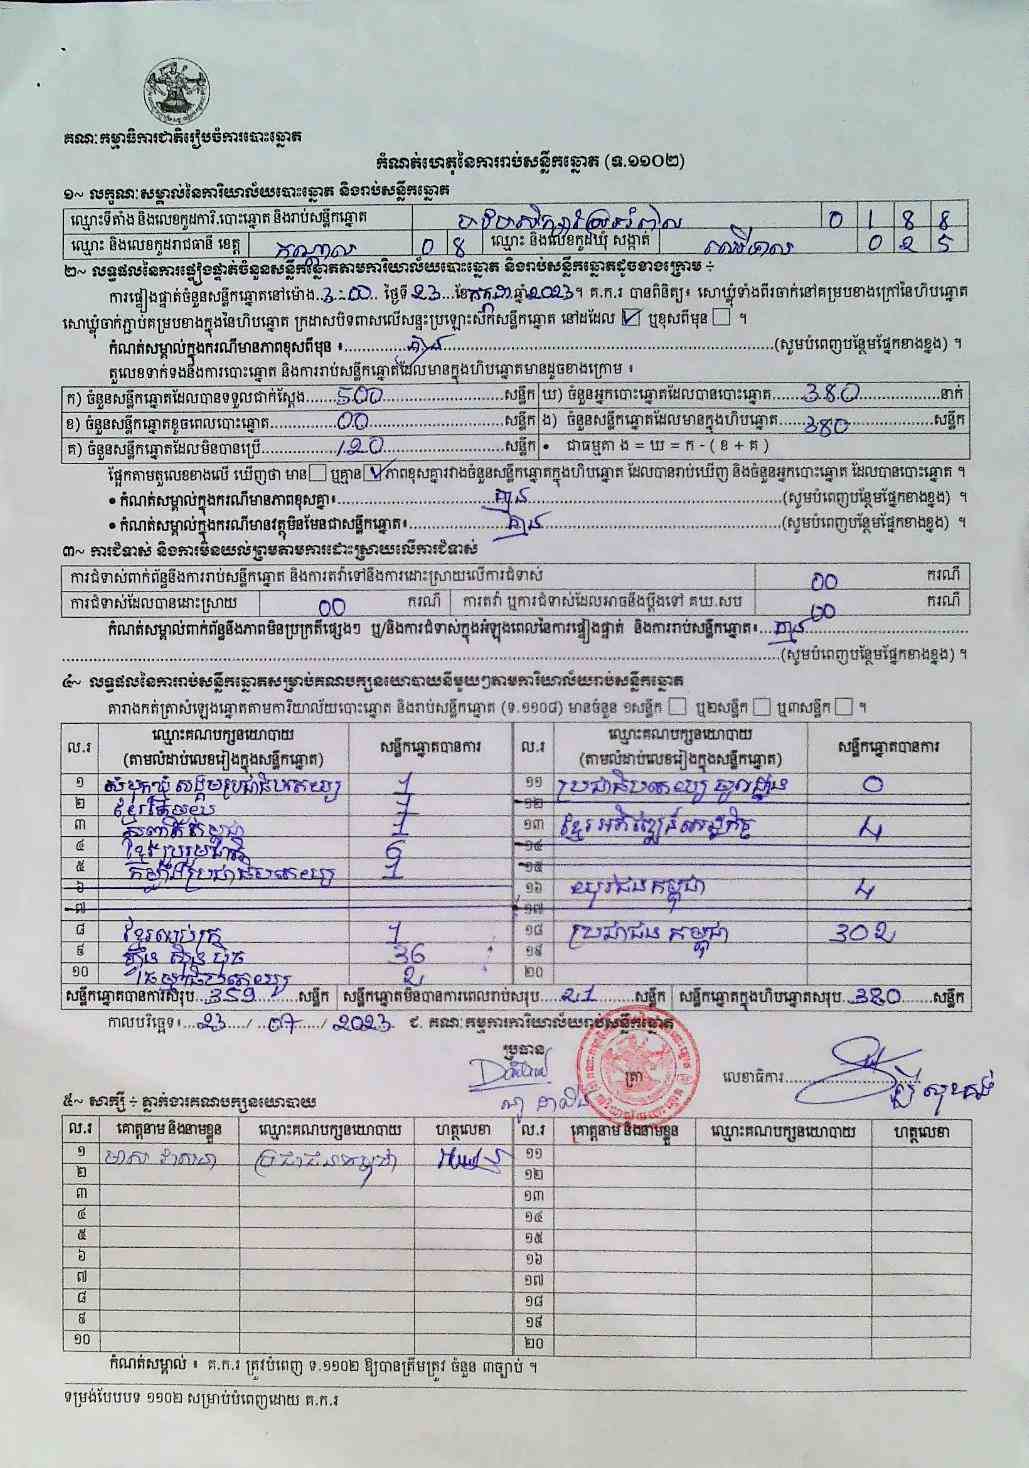 គណៈកម្មាធិការជាតិរៀបចំការបោះឆ្នោត
កំណត់ហេតុនៃការរាប់សន្លឹកឆ្នោត (ទ.១១០២)
១~ លក្ខណៈសម្គាល់នៃការិយាល័យបោះឆ្នោត និងរាប់សន្លឹកឆ្នោត
ឈ្មោះទីតាំង និងលេខកូដការិ.បោះឆ្នោត និងរាប់សន្លឹកឆ្នោត 0 1 8 8
ឈ្មោះ និងលេខកូដរាជធានី ខេត្ត កណ្តាល 0 8 ឈ្មោះ និងលេខកូដឃុំ សង្កាត់ 0 2 5
២~ លទ្ធផលនៃការផ្ទៀងផ្ទាត់ចំនួនសន្លឹកឆ្នោតតាមការិយាល័យបោះឆ្នោត និងរាប់សន្លឹកឆ្នោតដូចខាងក្រោម ÷
ការផ្ទៀងផ្ទាត់ចំនួនសន្លឹកឆ្នោតនៅម៉ោង..3:00.. ថ្ងៃទី 23 ...ខែ កក្កដា ឆ្នាំ 2023។ គ.ក.រ បានពិនិត្យ៖ សោឃ្លុំទាំងពីរចាក់នៅគម្របខាងក្រៅនៃហិបឆ្នោត
សោឃ្លុំចាក់ភ្ជាប់គម្របខាងក្នុងនៃហិបឆ្នោត ក្រដាសបិទពាសលើសន្ទះប្រឡោះស៊កសន្លឹកឆ្នោត នៅដដែល ☑ ឬខុសពីមុន ☐ ។
កំណត់សម្គាល់ក្នុងករណីមានភាពខុសពីមុន ៖ គ្មាន (សូមបំពេញបន្ថែមផ្នែកខាងខ្នង) ។
តួលេខទាក់ទងនឹងការបោះឆ្នោត និងការរាប់សន្លឹកឆ្នោតដែលមានក្នុងហិបឆ្នោតមានដូចខាងក្រោម ៖
ក) ចំនួនសន្លឹកឆ្នោតដែលបានទទួលជាក់ស្តែង 500 សន្លឹក ឃ) ចំនួនអ្នកបោះឆ្នោតដែលបានបោះឆ្នោត 380 នាក់
ខ) ចំនួនសន្លឹកឆ្នោតខូចពេលបោះឆ្នោត 00 សន្លឹក ង) ចំនួនសន្លឹកឆ្នោតដែលមានក្នុងហិបឆ្នោត 380 សន្លឹក
គ) ចំនួនសន្លឹកឆ្នោតដែលមិនបានប្រើ 120 សន្លឹក • ជាធម្មតា ង = ឃ = ក - ( ខ + គ )
ផ្អែកតាមតួលេខខាងលើ ឃើញថា មាន ☐ ឬគ្មាន ☑ ភាពខុសគ្នារវាងចំនួនសន្លឹកឆ្នោតក្នុងហិបឆ្នោត ដែលបានរាប់ឃើញ និងចំនួនអ្នកបោះឆ្នោត ដែលបានបោះឆ្នោត ។
• កំណត់សម្គាល់ក្នុងករណីមានភាពខុសគ្នា៖ គ្មាន (សូមបំពេញបន្ថែមផ្នែកខាងខ្នង) ។
• កំណត់សម្គាល់ក្នុងករណីមានវត្ថុមិនមែនជាសន្លឹកឆ្នោត៖ គ្មាន (សូមបំពេញបន្ថែមផ្នែកខាងខ្នង) ។
៣~ ការជំទាស់ និងការមិនយល់ព្រមតាមការដោះស្រាយលើការជំទាស់
ការជំទាស់ពាក់ព័ន្ធនឹងការរាប់សន្លឹកឆ្នោត និងការតវ៉ាទៅនឹងការដោះស្រាយលើការជំទាស់ 00 ករណី
ការជំទាស់ដែលបានដោះស្រាយ 00 ករណី ការតវ៉ា ឬការជំទាស់ដែលអាចនឹងប្តឹងទៅ គឃ.សប 00 ករណី
កំណត់សម្គាល់ពាក់ព័ន្ធនឹងភាពមិនប្រក្រតីផ្សេងៗ ឬ/និងការជំទាស់ក្នុងអំឡុងពេលនៃការផ្ទៀងផ្ទាត់ និងការរាប់សន្លឹកឆ្នោត៖ គ្មាន
(សូមបំពេញបន្ថែមផ្នែកខាងខ្នង) ។
៤~ លទ្ធផលនៃការរាប់សន្លឹកឆ្នោតសម្រាប់គណបក្សនយោបាយនីមួយៗតាមការិយាល័យរាប់សន្លឹកឆ្នោត
តារាងកត់ត្រាសំឡេងឆ្នោតតាមការិយាល័យបោះឆ្នោត និងរាប់សន្លឹកឆ្នោត (ទ.១១០៨) មានចំនួន ១សន្លឹក ☐ ឬ២សន្លឹក ☐ ឬ៣សន្លឹក ☐ ។
ល.រ ឈ្មោះគណបក្សនយោបាយ (តាមលំដាប់លេខរៀងក្នុងសន្លឹកឆ្នោត) សន្លឹកឆ្នោតបានការ ល.រ ឈ្មោះគណបក្សនយោបាយ (តាមលំដាប់លេខរៀងក្នុងសន្លឹកឆ្នោត) សន្លឹកឆ្នោតបានការ
១ សំបុកឃ្មុំ សង្គមប្រជាធិបតេយ្យ 1 ១១ ប្រជាធិបតេយ្យ មូលដ្ឋាន 0
២ ខ្មែរ 1 ១២
៣ កម្ពុជា 1 ១៣ ខ្មែរអភិវឌ្ឍន៍សេដ្ឋកិច្ច 4
៤ ខ្មែររួបរួមជាតិ 6 ១៤
៥ ប្រជាធិបតេយ្យ 1 ១៥
៦ ១៦ យុវជនកម្ពុជា 4
៧ ១៧
៨ ខ្មែរឈប់ក្រ 1 ១៨ ប្រជាជន កម្ពុជា 302
៩ ហ្វ៊ុន ស៊ិន ប៉ិច 36 ១៩
១០ ប្រជាធិបតេយ្យ 2 ២០
សន្លឹកឆ្នោតបានការសរុប 359 សន្លឹក សន្លឹកឆ្នោតមិនបានការពេលរាប់សរុប 21 សន្លឹក សន្លឹកឆ្នោតក្នុងហិបឆ្នោតសរុប 380 សន្លឹក
កាលបរិច្ឆេទ៖ 23 / 07 / 2023 ជ. គណៈកម្មការការិយាល័យរាប់សន្លឹកឆ្នោត
ប្រធាន ត្រា លេខាធិការ
៥~ សាក្សី ÷ ភ្នាក់ងារគណបក្សនយោបាយ
ល.រ គោត្តនាម និងនាមខ្លួន ឈ្មោះគណបក្សនយោបាយ ហត្ថលេខា ល.រ គោត្តនាម និងនាមខ្លួន ឈ្មោះគណបក្សនយោបាយ ហត្ថលេខា
១ ប្រជាជនកម្ពុជា ១១
២ ១២
៣ ១៣
៤ ១៤
៥ ១៥
៦ ១៦
៧ ១៧
៨ ១៨
៩ ១៩
១០ ២០
កំណត់សម្គាល់ ៖ គ.ក.រ ត្រូវបំពេញ ទ.១១០២ ឱ្យបានត្រឹមត្រូវ ចំនួន ៣ច្បាប់ ។
ទម្រង់បែបបទ ១១០២ សម្រាប់បំពេញដោយ គ.ក.រ